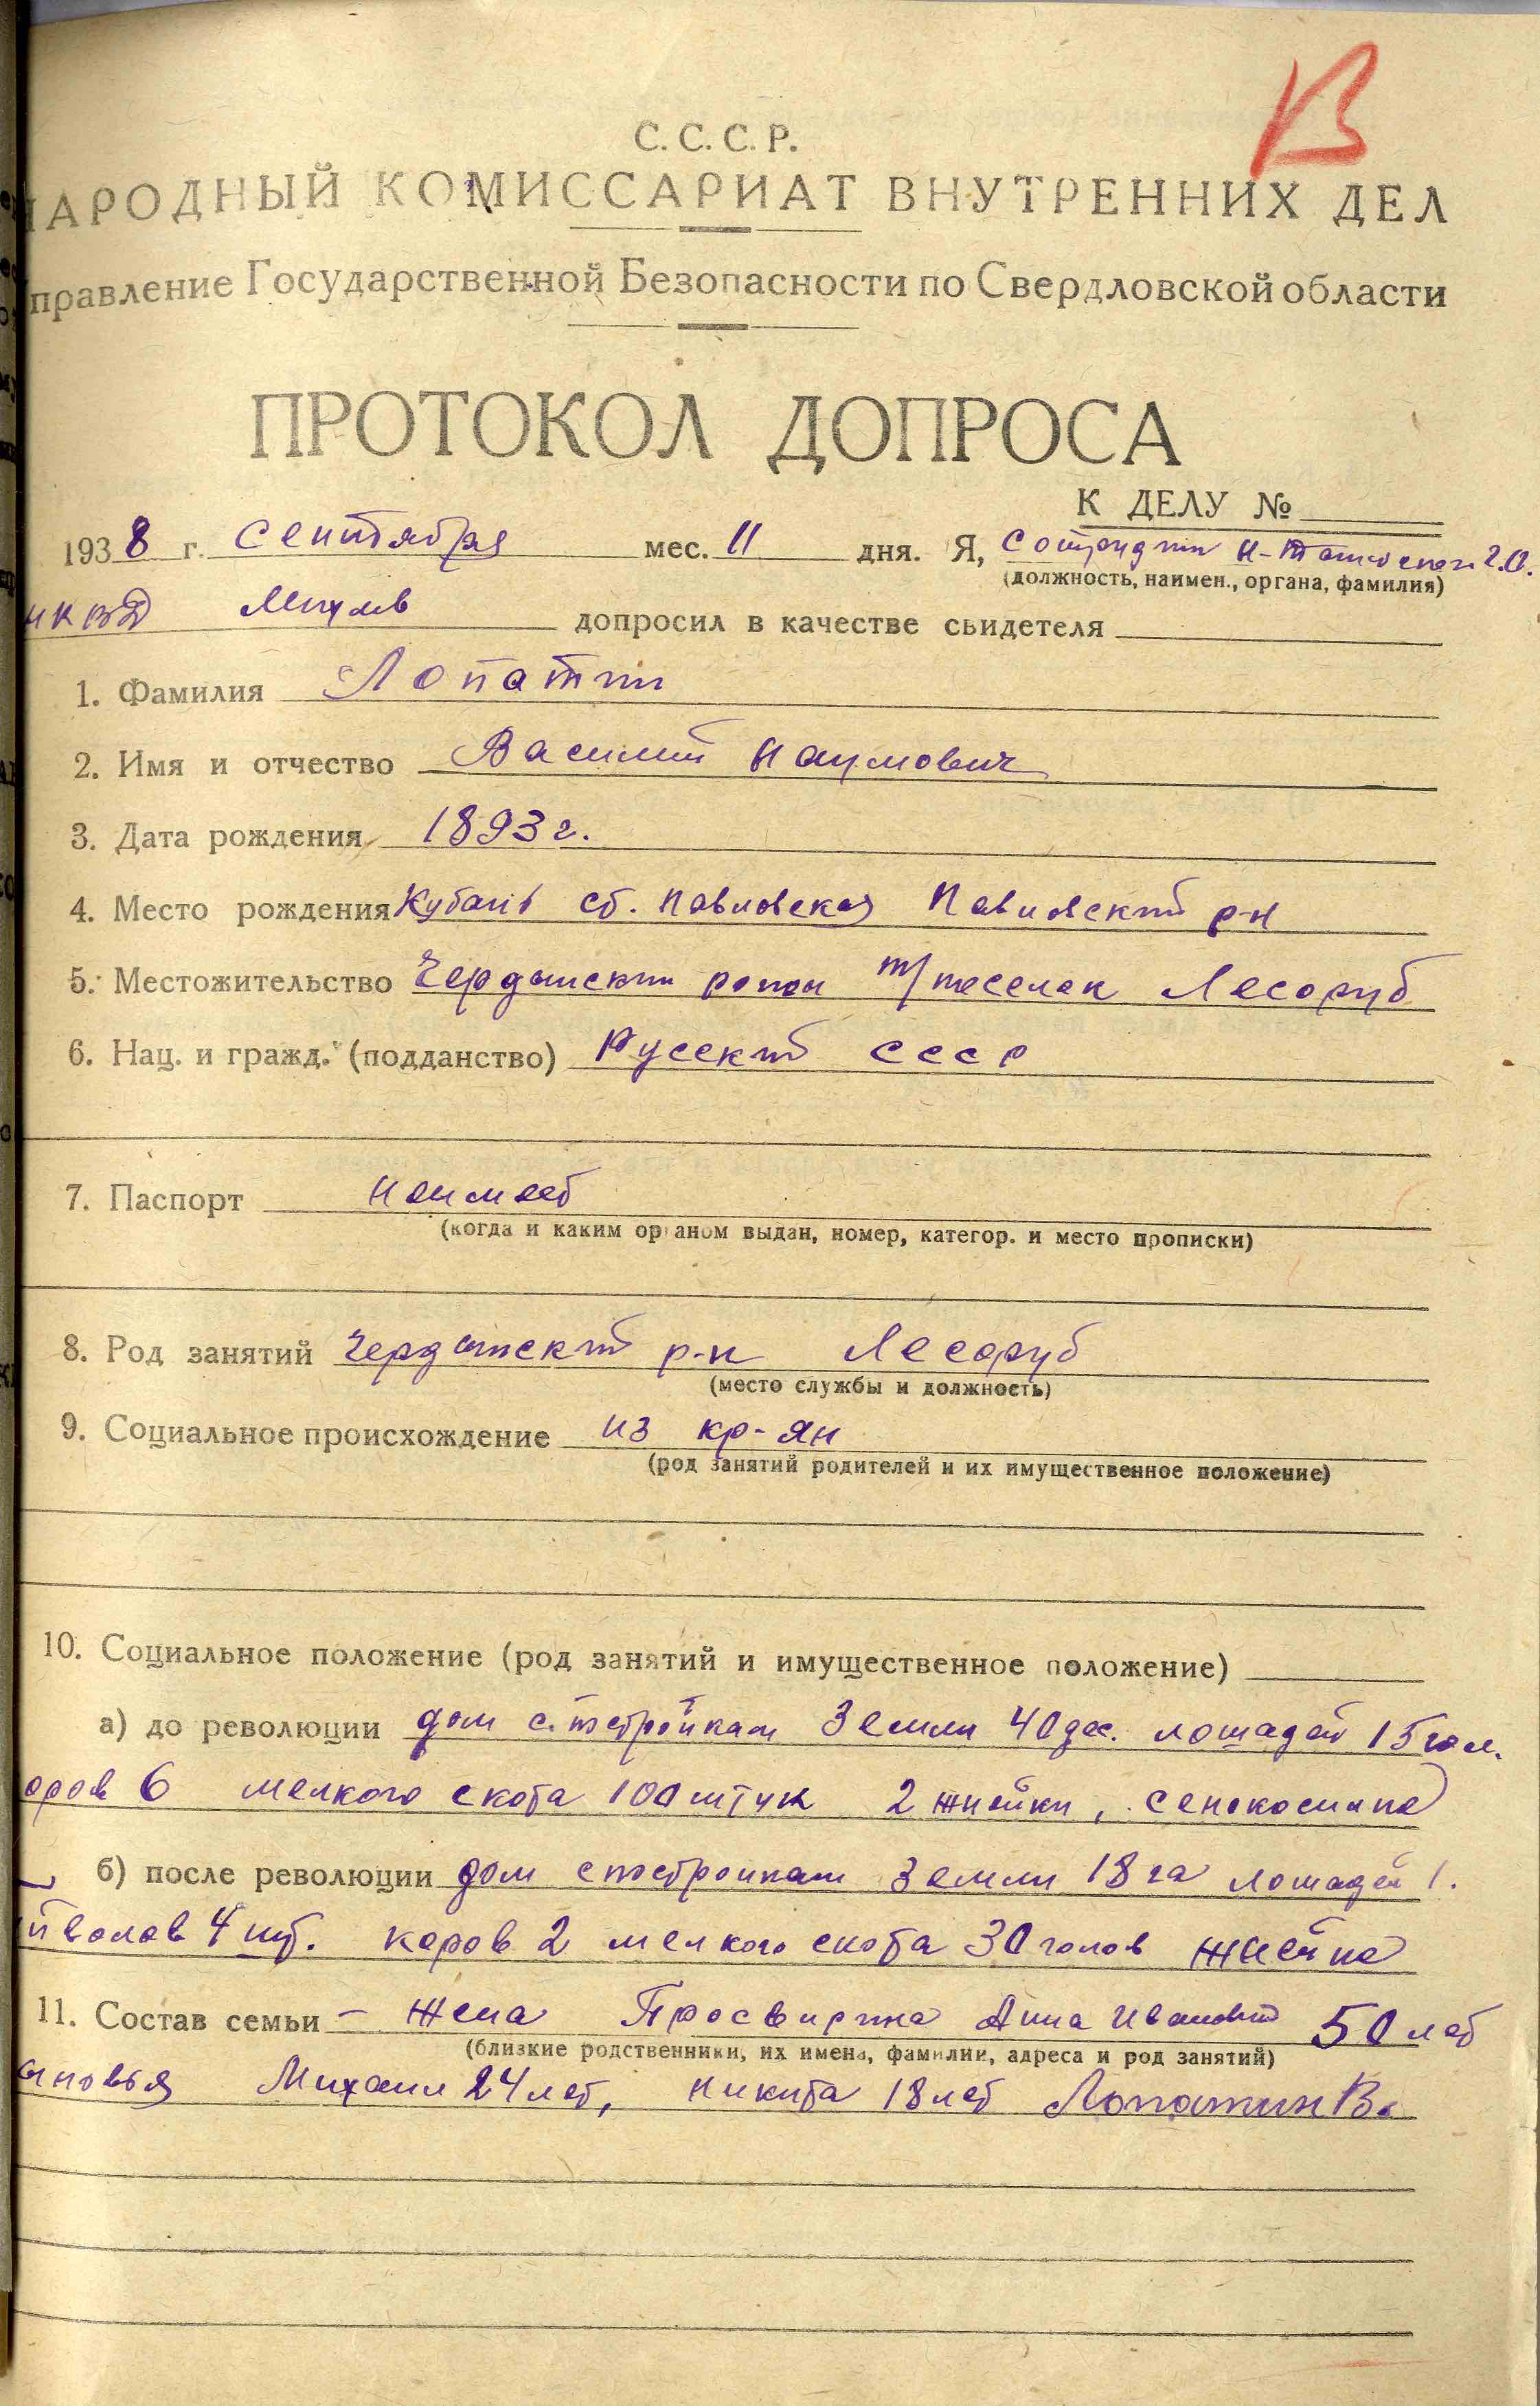 В
С. С. С. Р.
НАРОДНЫЙ КОМИССАРИАТ ВНУТРЕННИХ ДЕЛ
правление Государственной Безопасности по Свердловской области
ПРОТОКОЛ ДОПРОСА
К ДЕЛУ №
1938 г. сентября мес. 11 дня. Я, сотрудник Н-
(должность, наимен., органа, фамилия)
НКВД допросил в качестве свидетеля
1. Фамилия Лопатин
2. Имя и отчество Василий Наумович
3. Дата рождения 1893 г.
4. Место рождения Кубань ст. Павловская Павловский р-н
5. Местожительство Чердынский район т/поселок Лесоруб
6. Нац. и гражд. (подданство) Русский СССР
7. Паспорт неимеет
(когда и каким органом выдан, номер, категор. и место прописки)
8. Род занятий Чердынский р-н Лесоруб
(место службы и должность)
9. Социальное происхождение из кр-ян
(род занятий родителей и их имущественное положение)
10. Социальное положение (род занятий и имущественное положение)
а) до революции дом с. постройкам земли 40 дес. лошадей 15 гол.
оров 6 мелкого скота 100 штук 2 жнейки, сенокосилка
б) после революции дом с постройкам земли 18 га лошадей 1.
волов 4 шт. коров 2 мелкого скота 30 голов жнейка
11. Состав семьи – жена Просвирина Анна Ивановна 50 лет
(близкие родственники, их имена, фамилии, адреса и род занятий)
ыновья Михаил 24 лет, Никита 18 лет Лопатин В.